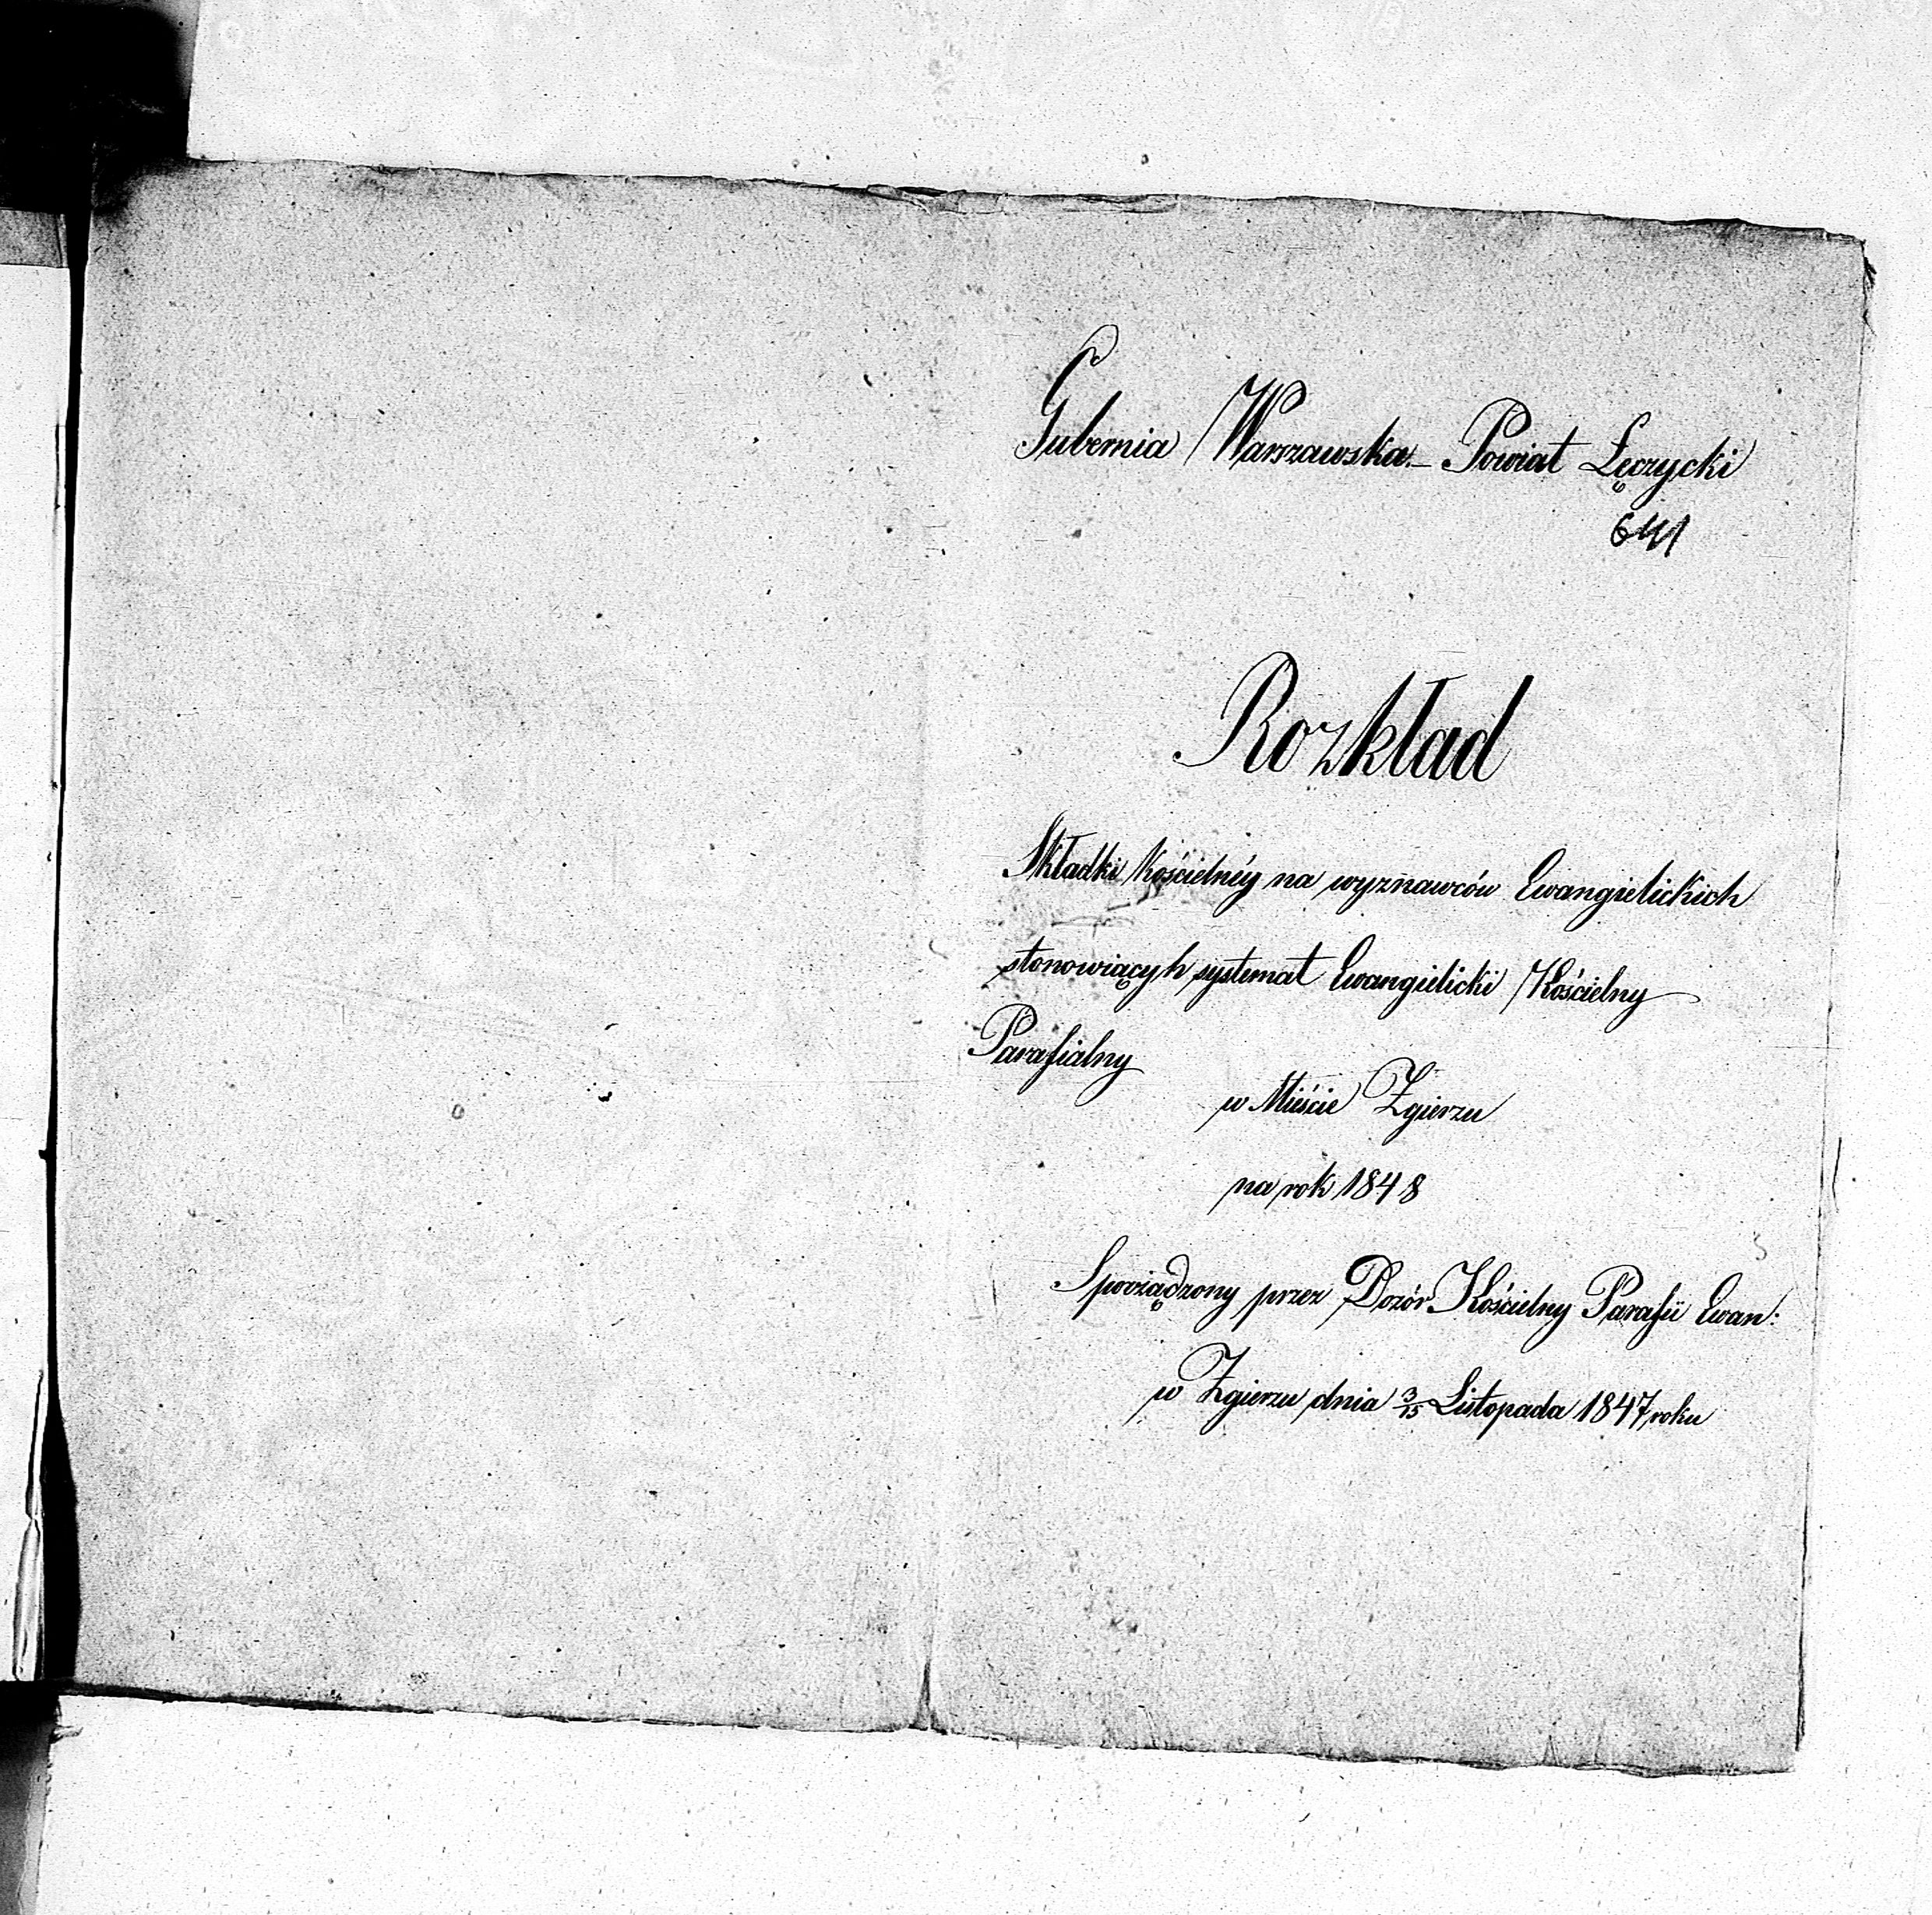 Gubernia Warszawska.– Powiat Łęczycki
641
Rozkład
Składki Kościelnéy na wyznawców Ewangielickich
stonowiącyh systemat Ewangielicki Kościelny
Parafialny
w Mieście Zgierzu
na rok 1848
Sporządzony przez Dozór Kościelny Parafii Ewan:
w Zgierzu dnia 3/15 Listopada 1847 roku